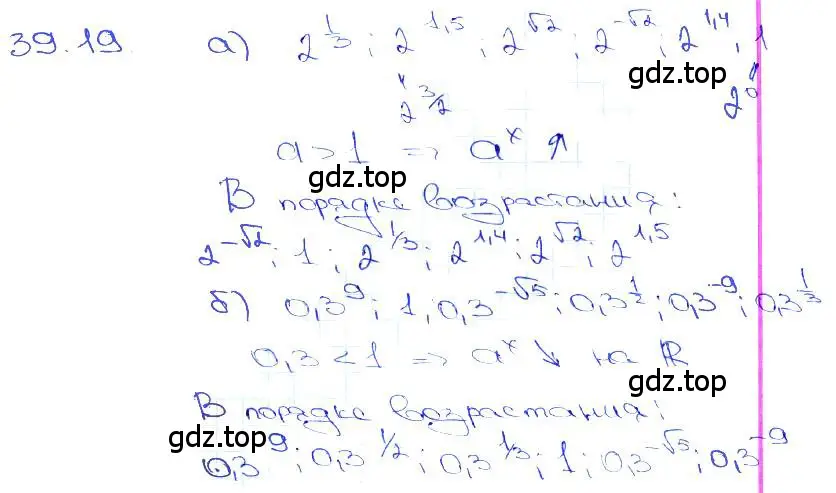 39.19. а) 2^{1/3}; 2^{1,5}; 2^{√2}; 2^{-√2}; 2^{1,4}, 1
gdz.top
2^{3/2} 2^0
a>1 ⇒ a^x ↑
gdz.top
В порядке возрастания:
2^{-√2}; 1; 2^{1/3}; 2^{1,4}; 2^{√2}; 2^{1,5}
б) 0,3^9; 1; 0,3^{-√5}; 0,3^{1/2}; 0,3^{-9}; 0,3^{1/3}
0,3<1 ⇒ a^x ↓ на R
gdz.top
В порядке возрастания:
gdz.top
0,3^9; 0,3^{1/2}; 0,3^{1/3}; 1; 0,3^{-√5}; 0,3^{-9}